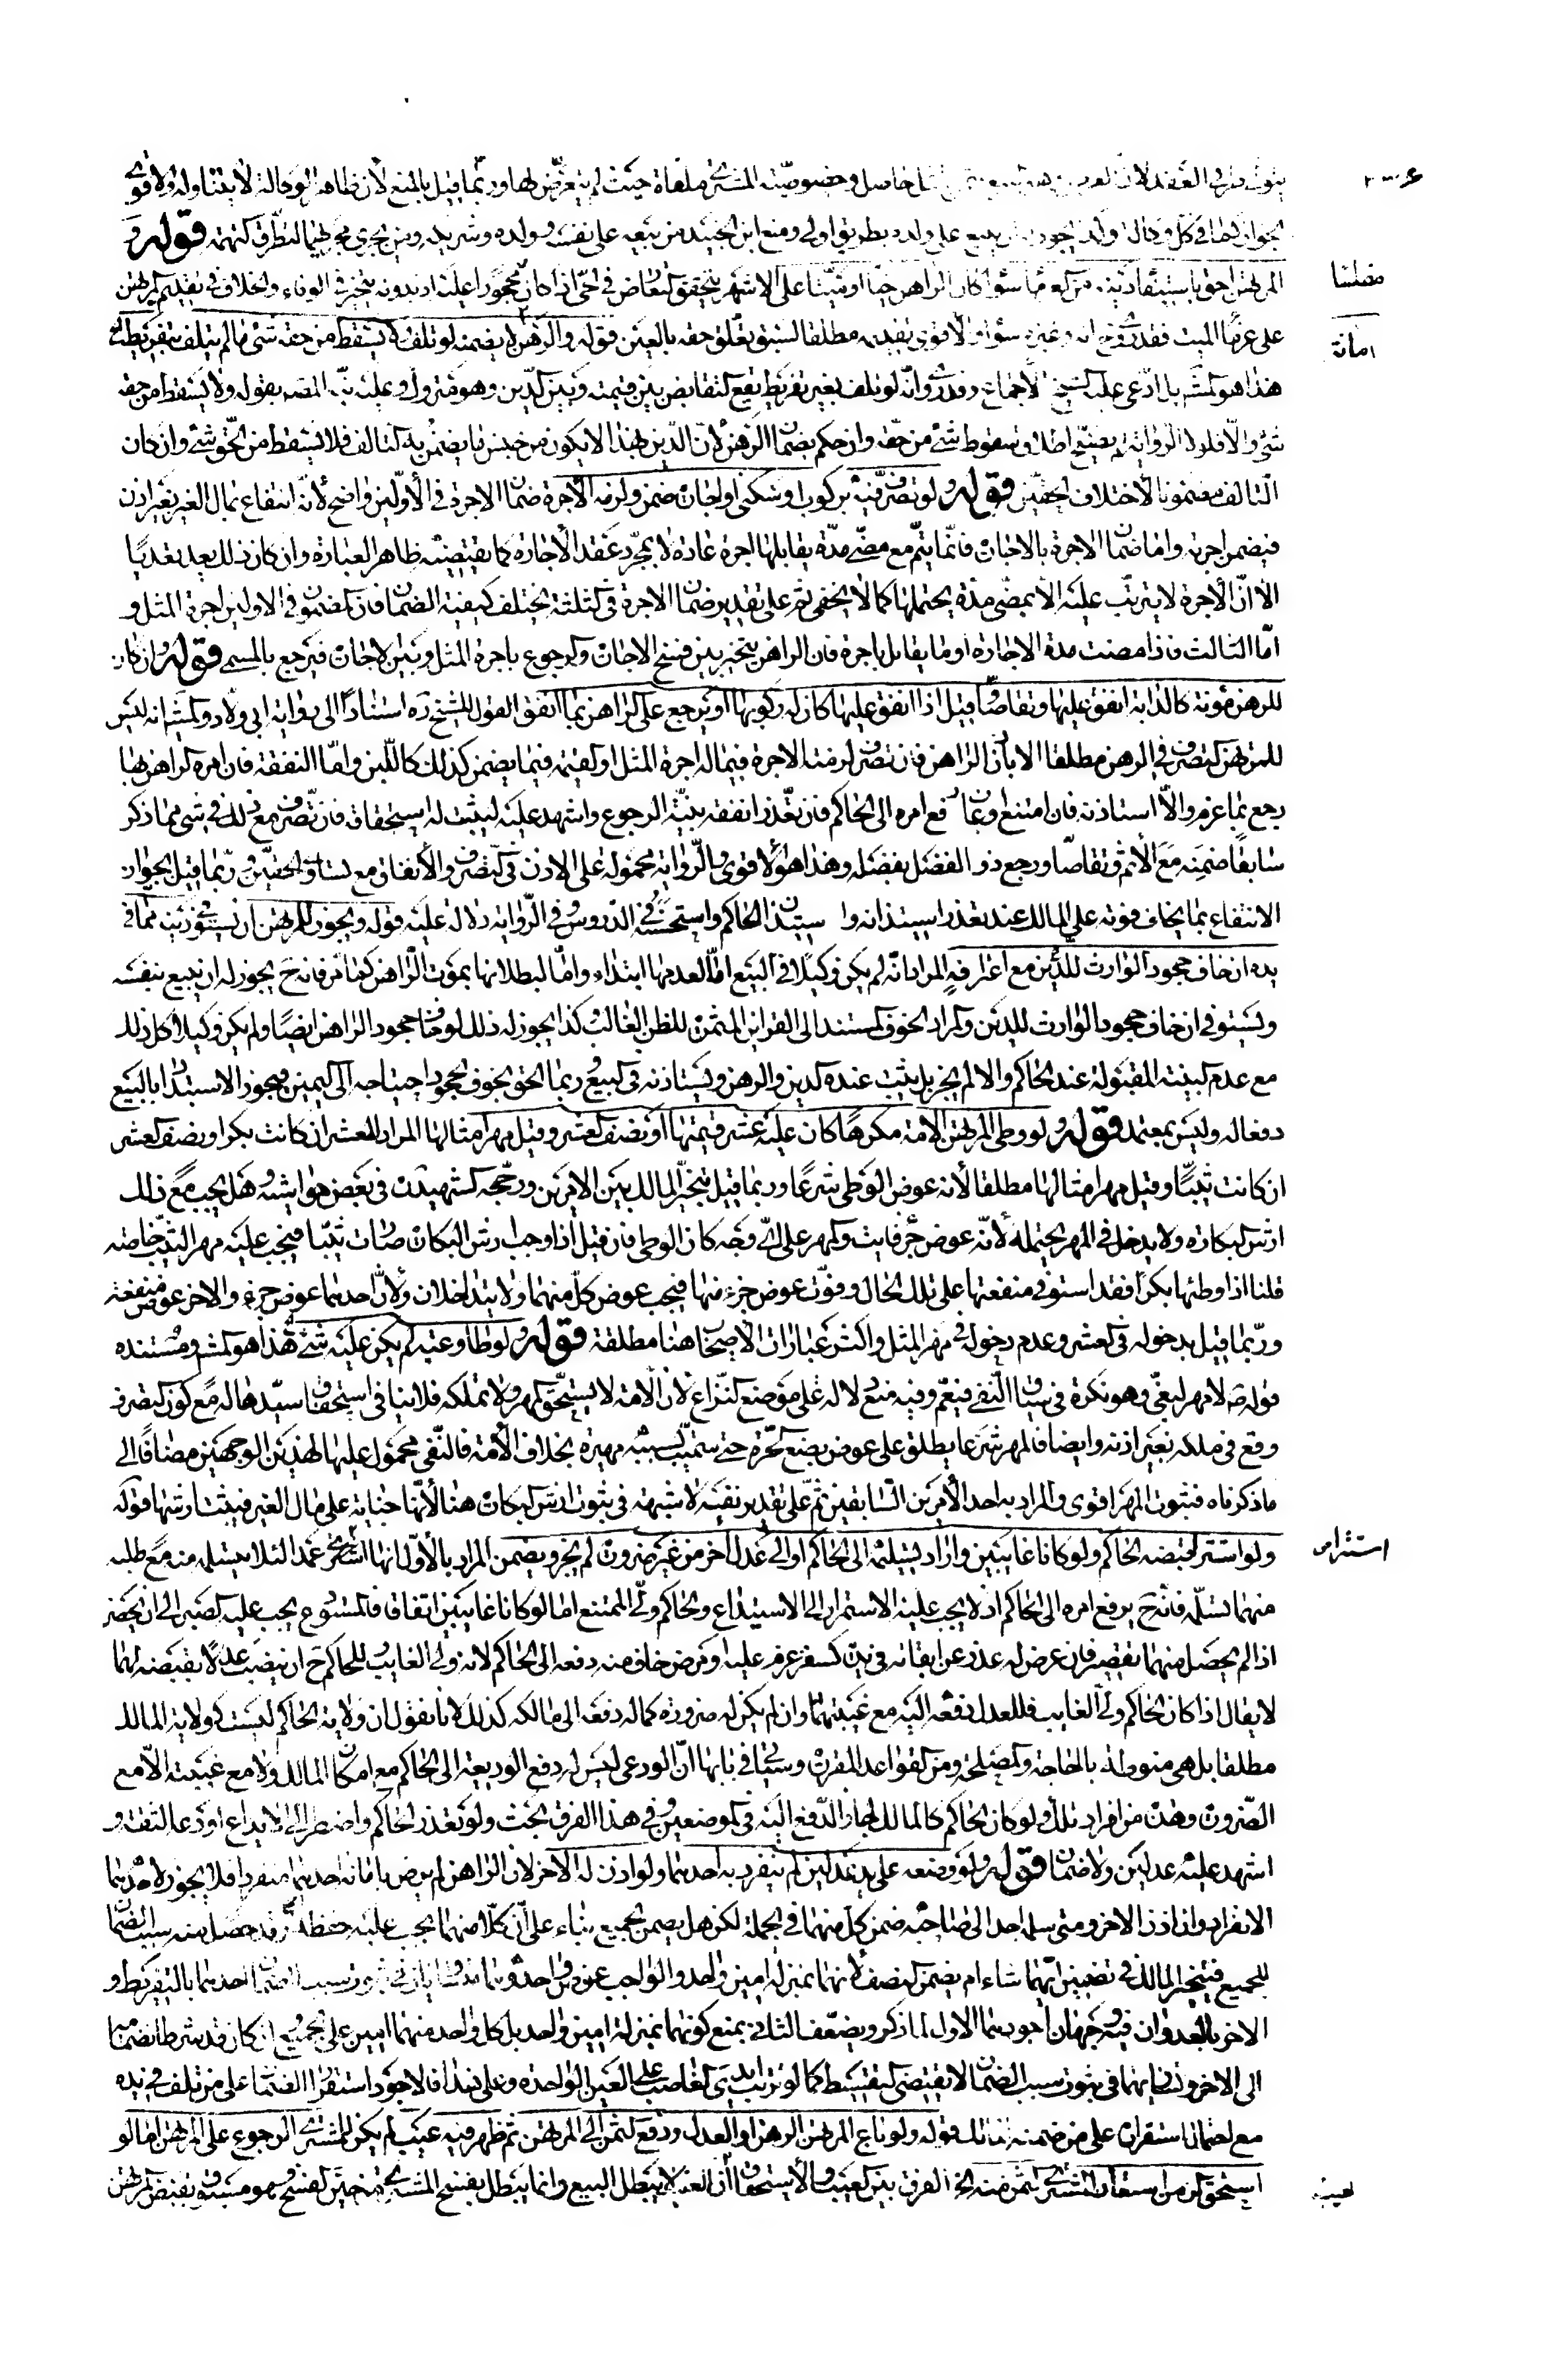 حاصل وخصوصية المشتري ملغاة حيث لم يتعرض لها وربما قيل بالمنع لأن ظاهر الوكالة لا يتناوله والأقوى
الجواز كما في كل وكالة بيع على ولده بطريق أولى ومنع ابن الجنيد من بيعه على نفسه وولده وشريكه ومن يجري مجراهما لتطرق التهمة قوله و
المرتهن أحق باستيفاء دينه من غيره سواء كان الراهن حيا أو ميتا على الأشهر يتحقق التعارض في الحي إذا كان محجورا عليه إذ بدونه يتخير في الوفاء والخلاف في تقديم المرتهن
على غرماء الميت فقد روي أنه وغيره سواء والأقوى تقديمه مطلقا لسبق تعلق حقه بالعين قوله والرهن لا يضمنه لو تلف ولا يسقط من حقه شيء ما لم يتلف بتفريطه
هذا هو المشهور بل ادعى عليه الشيخ الإجماع وقد روي أنه لو تلف بغير تفريط يقع التقاص بين قيمته وبين الدين وهو متروك وعليه نبه المصنف بقوله ولا يسقط من حقه
شيء وإلا فلولا الرواية لم يصح إطلاق سقوط شيء من حقه وإن حكم بضمان الرهن لأن الدين لهذا لا يكون من جنس ما يضمن به التالف فلا يسقط من الحق شيء وإن كان
التالف مضمونا لاختلاف الحقين قوله ولو تصرف فيه بركوب أو سكنى أو إجارة ضمن ولزمه الأجرة ضمان الأجرة في الأولين واضح لأنه انتفاع بمال الغير بغير إذن
فيضمن أجرته وأما ضمان الأجرة بالإجارة فإنما يتم مع مضي مدة يقابلها أجرة عادة لا بمجرد عقد الإجارة كما يقتضيه ظاهر العبارة وإن كان ذلك يعد تعديا
إلا أن الأجرة لا يترتب عليه إلا بمضي مدة يحتملها كما لا يخفى ثم على تقدير ضمان الأجرة في الثلاثة يختلف كيفية الضمان فإن المضمون في الأولين أجرة المثل و
أما الثالث فإذا مضت مدة الإجارة أو ما يقابل بأجرة فإن الراهن يتخير بين فسخ الإجارة والرجوع بأجرة المثل وبين الإجازة فيرجع بالمسمى قوله وإن كان
للرهن مؤنة كالدابة أنفق عليها وتقاصا وقيل إذا أنفق عليها كان له ركوبها أو يرجع على الراهن بما أنفق القول للشيخ ره استنادا إلى رواية أبي ولاد والمشهور أنه ليس
للمرتهن التصرف في الرهن مطلقا إلا بإذن الراهن فإن تصرف لزمته الأجرة فيما له أجرة والمثل أو القيمة فيما يضمن كذلك كاللبن وأما النفقة فإن أمره الراهن بها
رجع بما غرم وإلا استأذنه فإن امتنع أو غاب رفع أمره إلى الحاكم فإن تعذر أنفقه بنية الرجوع وأشهد عليه ليثبت له استحقاقه فإن تصرف مع ذلك في شيء مما ذكر
سابقا ضمنه مع الإثم وتقاصا ورجع ذو الفضل بفضله وهذا هو الأقوى والرواية محمولة على الإذن في التصرف والإنفاق مع تساوي الحقين وربما قيل بجواز
الانتفاع بما يخاف فوته على المالك عند تعذر استيذانه واستيذان الحاكم واستحسنه في الدروس وفي الرواية دلالة عليه قوله ويجوز للمرتهن أن يستوفي دينه مما في
يده إن خاف جحود الوارث للدين مع اعترافه المراد أنه لم يكن وكيلا في البيع إما لعدمها ابتداء وإما لبطلانها بموت الراهن كما مر فإنه ح يجوز له أن يبيع بنفسه
ويستوفي إن خاف جحود الوارث للدين والمراد الخوف المستند إلى القرائن المثمرة للظن الغالب وكذا يجوز له ذلك لو خاف جحود الراهن أيضا ولم يكن وكيلا كل ذلك
مع عدم البينة المقبولة عند الحاكم وإلا لم يجز بل يثبت عنده الدين والرهن ويستأذنه في البيع وربما ألحق بخوف الجحود احتياجه إلى اليمين فيجوز الاستبداد بالبيع
دفعا له وليس بمعتمد قوله ولو وطئ المرتهن الأمة مكرها كان عليه عشر قيمتها أو نصف العشر وقيل مهر أمثالها المراد العشر إن كانت بكرا ونصف العشر
إن كانت ثيبا وقيل مهر أمثالها مطلقا لأنه عوض الوطي شرعا وربما قيل بتخير المالك بين الأمرين ورجحه الشهيد ره في بعض حواشيه وهل يجب مع ذلك
أرش البكارة ولا يدخل في المهر يحتمله لأنه عوض جزء فايت والمهر على أي وجه كان الوطي فإن قيل إذا وجب أرش البكارة صارت ثيبا فيجب عليه مهر الثيب خاصة
قلنا إذا وطئها بكرا فقد استوفى منفعتها على تلك الحال وفوت عوض جزء منها فيجب عوض كل منهما ولا يتداخلان ولأن أحدهما عوض جزء والآخر عوض منفعة
وربما قيل بدخوله في العشر وعدم دخوله في مهر المثل وأكثر عبارات الأصحاب هنا مطلقة قوله ولو طاوعته لم يكن عليه شيء هذا هو المشهور ومستنده
قوله ص لا مهر لبغي وهو نكرة في سياق النفي فيعم وفيه منع دلالته على موضع النزاع لأن الأمة لا يستحق المهر ولا تملكه فلا ينافي استحقاق سيدها له مع كون التصرف
وقع في ملكه بغير إذنه وأيضا فالمهر شرعا يطلق على عوض بضع الحرة حتى سميت بسببه مهيرة بخلاف الأمة فالنفي محمول عليها لهذين الوجهين مضافا إلى
ما ذكرناه فثبوت المهر أقوى والمراد به أحد الأمرين السابقين ثم على تقدير نفيه لا شبهة في ثبوت أرش البكارة هنا لأنها جناية على مال الغير فيثبت أرشها قوله
ولو استترا أقبضه الحاكم ولو كانا غايبين وأراد تسليمه إلى الحاكم أو إلى عدل آخر من غير ضرورة لم يجز ويضمن المراد بالأول أنهما استترا عمدا لئلا يتسلمه منه مع طلبه
منهما تسلمه فإنه ح يرفع أمره إلى الحاكم إذ لا يجب عليه الاستمرار إلى الاستيداع والحاكم ولي الممتنع أما لو كانا غايبين اتفاقا فالمستودع يجب عليه الصبر إلى أن يحضر
إذا لم يحصل منهما تقصير فإن عرض له عذر عن إبقائه في يده كسفر عزم عليه أو مرض خاف منه دفعه إلى الحاكم لأنه ولي الغايب وللحاكم ح أن ينصب عدلا يقبضه لهما
لا يقال إذا كان الحاكم ولي الغايب فللعدل دفعه إليه مع غيبتهما وإن لم يكن له ضرورة كما له دفعه إلى مالكه كذلك لأنا نقول إن ولاية الحاكم ليست كولاية المالك
مطلقا بل هي منوطة بالحاجة والمصلحة ومن القواعد المقررة وسيأتي في بابها أن الودعي ليس له دفع الوديعة إلى الحاكم مع إمكان المالك ولا مع غيبته إلا مع
الضرورة وهذه من أفراد تلك ولو كان الحاكم كالمالك لجاز الدفع إليه في الموضعين وفي هذا الفرق بحث ولو تعذر الحاكم واضطر إلى الإيداع أودعه الثقة و
أشهد عليه عدلين ولا ضمان قوله ولو وضعه على يد عدلين لم ينفرد به أحدهما ولو أذن له الآخر لأن الراهن لم يرض بأمانة أحدهما منفردا فلا يجوز لأحدهما
الانفراد وإن أذن الآخر ومتى سلم أحدا إلى صاحبه ضمن كل منهما في الجملة لكن هل يضمن الجميع بناء على أن كلا منهما يجب عليه حفظه وقد حصل منه سبب الضمان
للجميع فيتخير المالك في تضمين أيهما شاء أم يضمن النصف لأنهما بمنزلة أمين واحد والواجب عوض واحد وهما متساويان في ثبوت سبب الضمان أحدهما بالتفريط و
الآخر بالعدوان فيه وجهان أجودهما الأول لما ذكر ويضعف الثاني بمنع كونهما بمنزلة أمين واحد بل كل واحد منهما أمين على الجميع إن كان قد شرط انضمامه
إلى الآخر وتساويهما في ثبوت سبب الضمان لا يقتضي التقسيط كما لو ترتب أيدي الغاصب على العين الواحدة وعلى هذا فالأجود استقرار الضمان على من تلف في يده
مع احتمال استقراره على من ضمنه المالك قوله ولو باع المرتهن الرهن أو العدل ودفع الثمن إلى المرتهن ثم ظهر فيه عيب لم يكن للمشتري الرجوع على المرتهن أما لو
استحق الرهن استعاد المشتري الثمن منه الخ الفرق بين العيب والاستحقاق أن العيب لا يبطل البيع وإنما يبطل بفسخ المشتري من حين الفسخ وهو مسبوق بقبض المرتهن
مفلسا
أمانة
استترا
لعيب